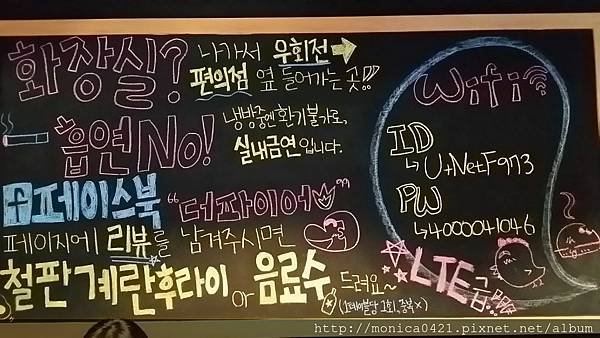 화장실? 나가서 우회전 →
편의점 옆 들어가는 곳!!!
흡연 No! 냉방중엔 환기불가로,
실내금연입니다.
페이스북 "더파이어"
페이지에 리뷰를 남겨주시면
철판계란후라이 or 음료수 드려요~
(1테이블당 1회, 중복 x)
Wifi
ID
↳ U+NetF973
PW
↳ 4000041046
LTE급
http://monica0421.pixnet.net/album